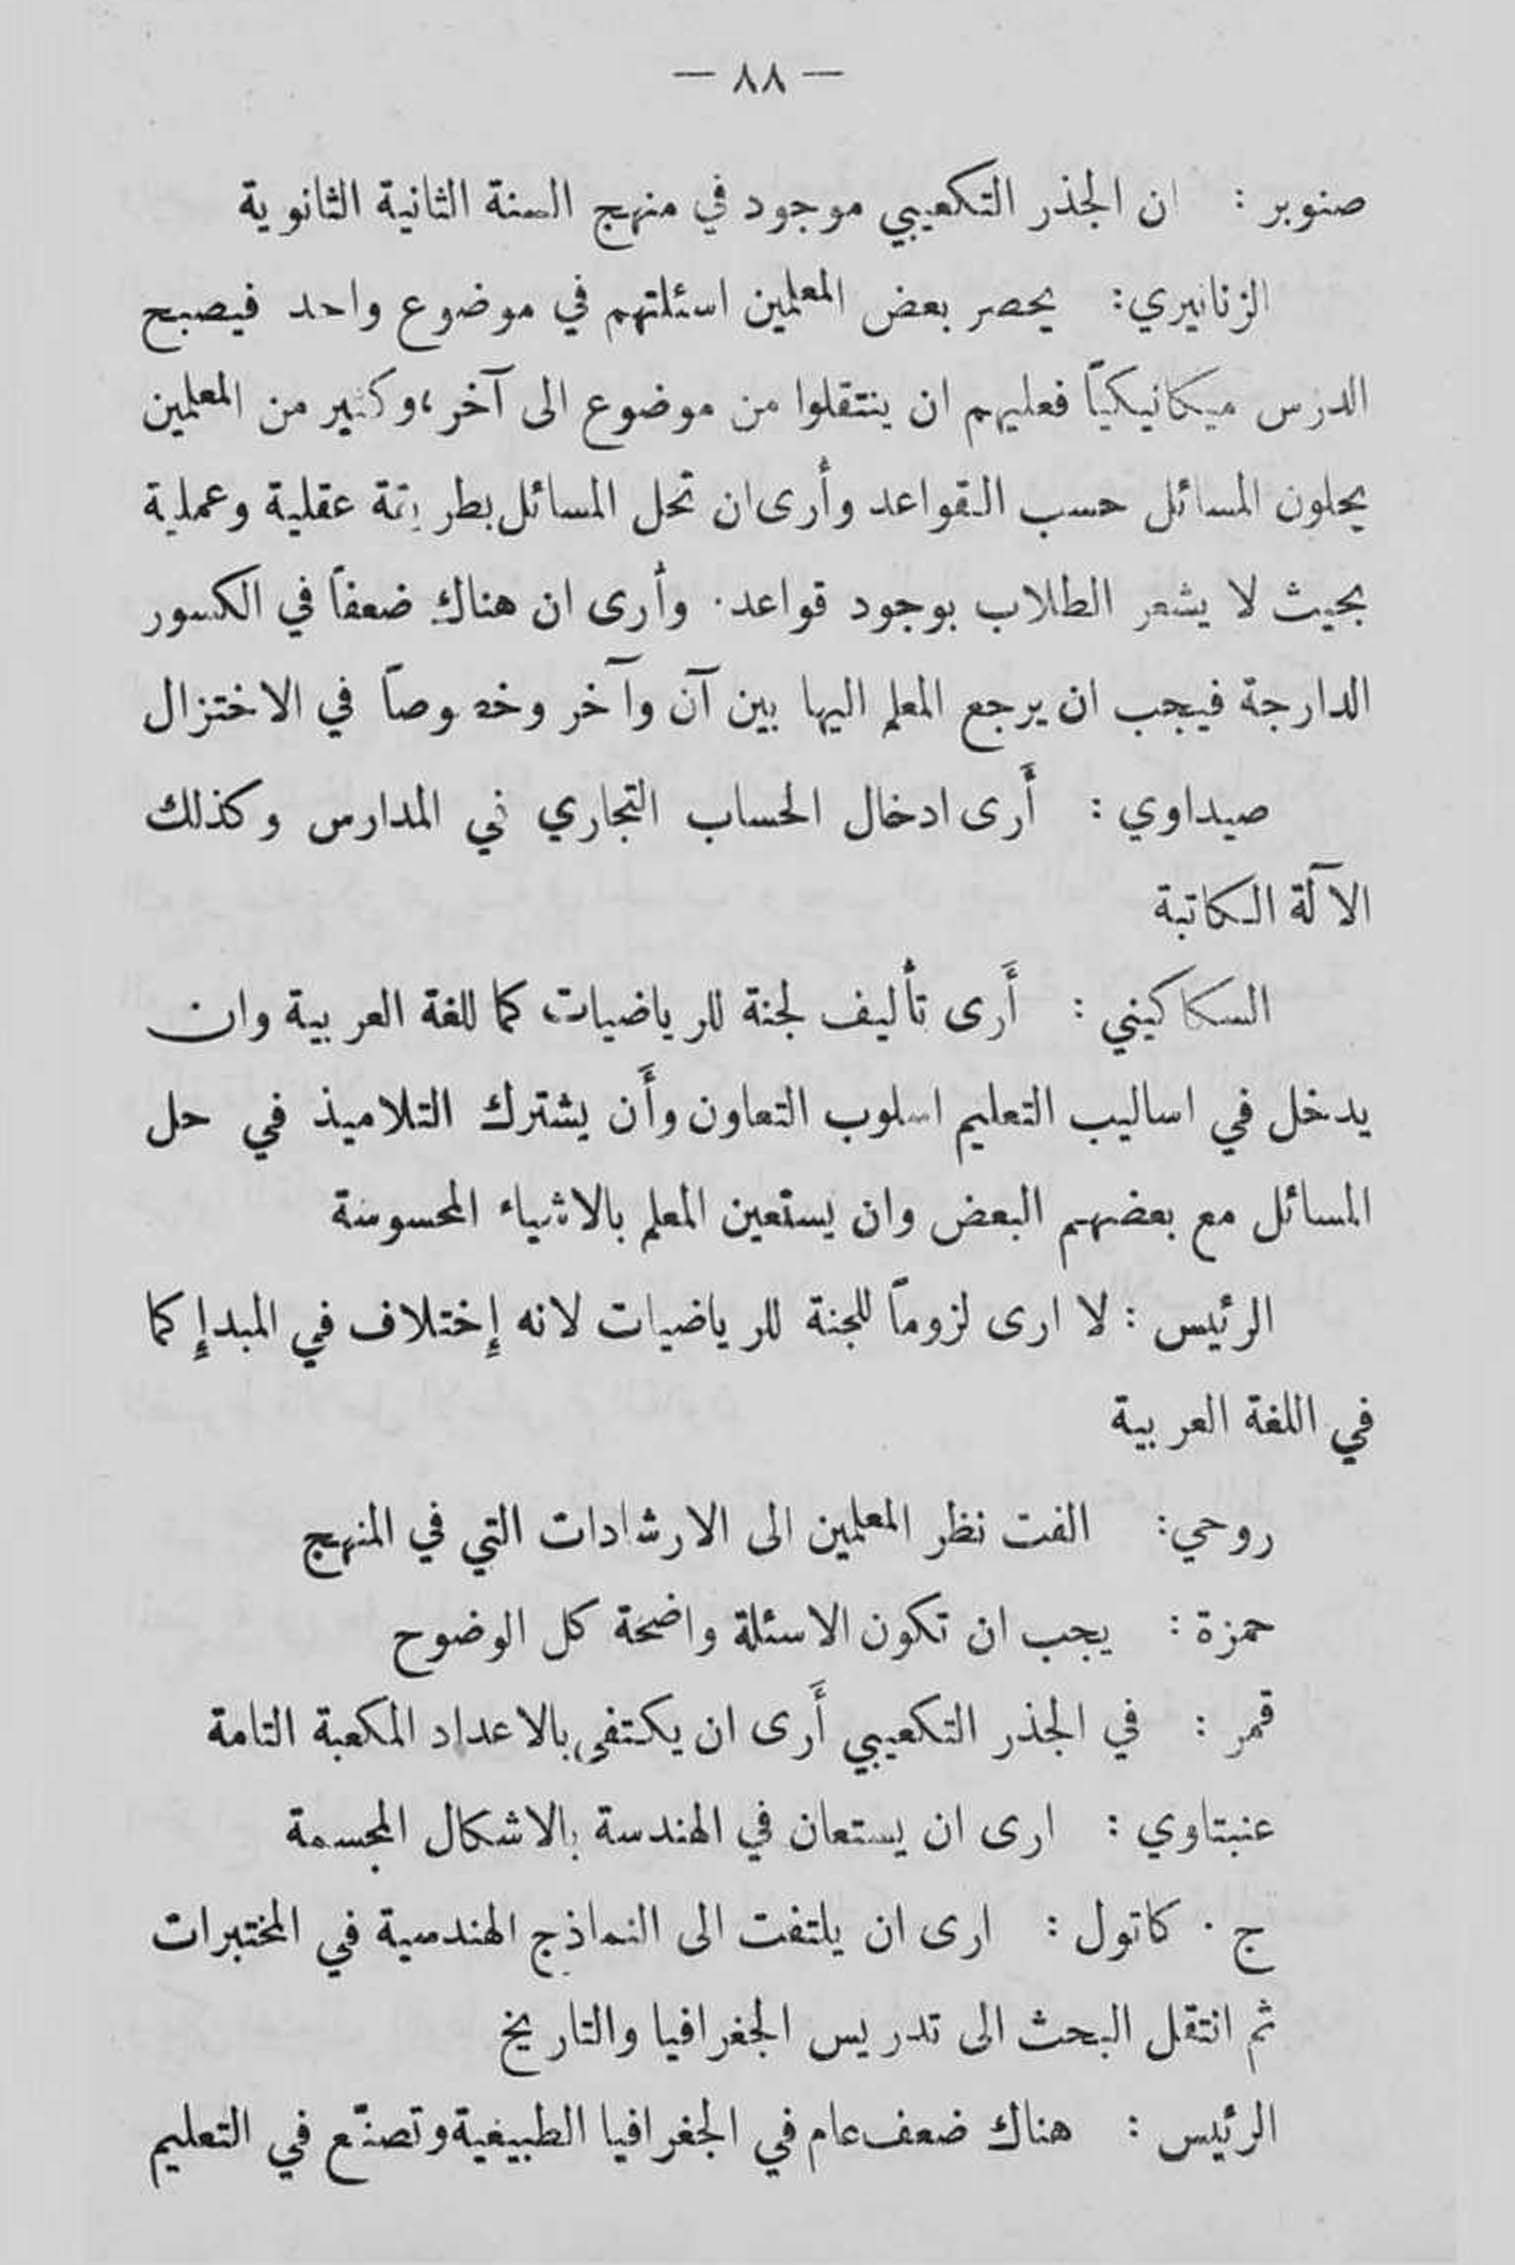 — ٨٨ —
صنوبر : ان الجذر التكعيبي موجود في منهج السنة الثانية الثانوية
الزنانيري : يحصر بعض المعلمين اسئلتهم في موضوع واحد فيصبح
الدرس ميكانيكيًا فعليهم ان ينتقلوا من موضوع الى آخر، وكثير من المعلمين
يحلون المسائل حسب القواعد وأرى ان تحل المسائل بطريقة عقلية وعملية
بحيث لا يشعر الطلاب بوجود قواعد . وأرى ان هناك ضعفاً في الكسور
الدارجة فيجب ان يرجع المعلم اليها بين آن وآخر وخصوصاً في الاختزال
صيداوي : أَرى ادخال الحساب التجاري في المدارس وكذلك
الآلة الكاتبة
السكاكيني : أَرى تأليف لجنة للرياضيات كما للغة العربية وان
يدخل في اساليب التعليم اسلوب التعاون وأَن يشترك التلاميذ في حل
المسائل مع بعضهم البعض وان يستعين المعلم بالاشياء المحسوسة
الرئيس : لا ارى لزوماً للجنة للرياضيات لانه إختلاف في المبدإ كما
في اللغة العربية
روحي : الفت نظر المعلمين الى الارشادات التي في المنهج
حمزة : يجب ان تكون الاسئلة واضحة كل الوضوح
قمر : في الجذر التكعيبي أَرى ان يكتفى بالاعداد المكعبة التامة
عنبتاوي : ارى ان يستعان في الهندسة بالاشكال المجسمة
ج . كاتول : ارى ان يلتفت الى النماذج الهندسية في المختبرات
ثم انتقل البحث الى تدريس الجغرافيا والتاريخ
الرئيس : هناك ضعف عام في الجغرافيا الطبيعية وتصنّع في التعليم